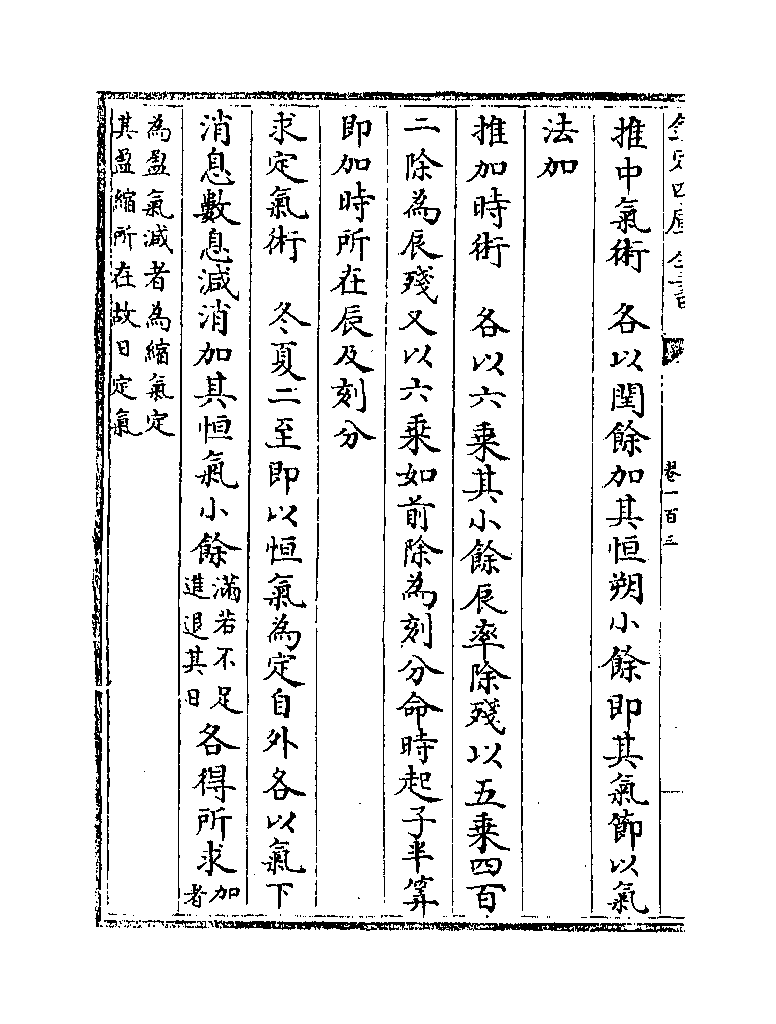 欽定四庫全書
卷一百三
推中氣術　各以閏餘加其恒朔小餘即其氣節以氣
法加
推加時術　各以六乗其小餘辰率除殘以五乗四百
二除為辰殘又以六乗如前除為刻分命時起子半算
即加時所在辰及刻分
求定氣術　冬夏二至即以恒氣為定自外各以氣下
消息數息減消加其恒氣小餘滿若不足進退其日各得所求加者
為盈氣減者為縮氣定
其盈縮所在故曰定氣